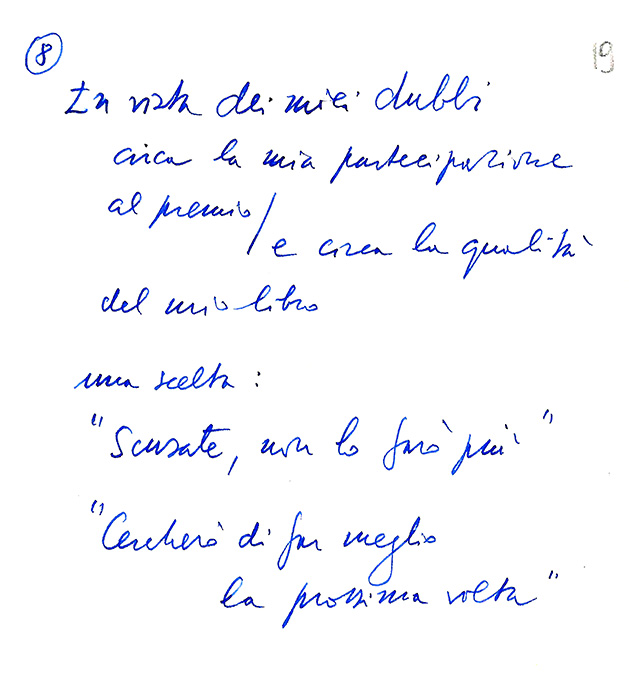 8
19
In vista dei miei dubbi
circa la mia partecipazione
al premio /
e circa la qualità
del mio libro
una scelta :
"Scusate, non lo farò più"
"Cercherò di far meglio
la prossima volta"